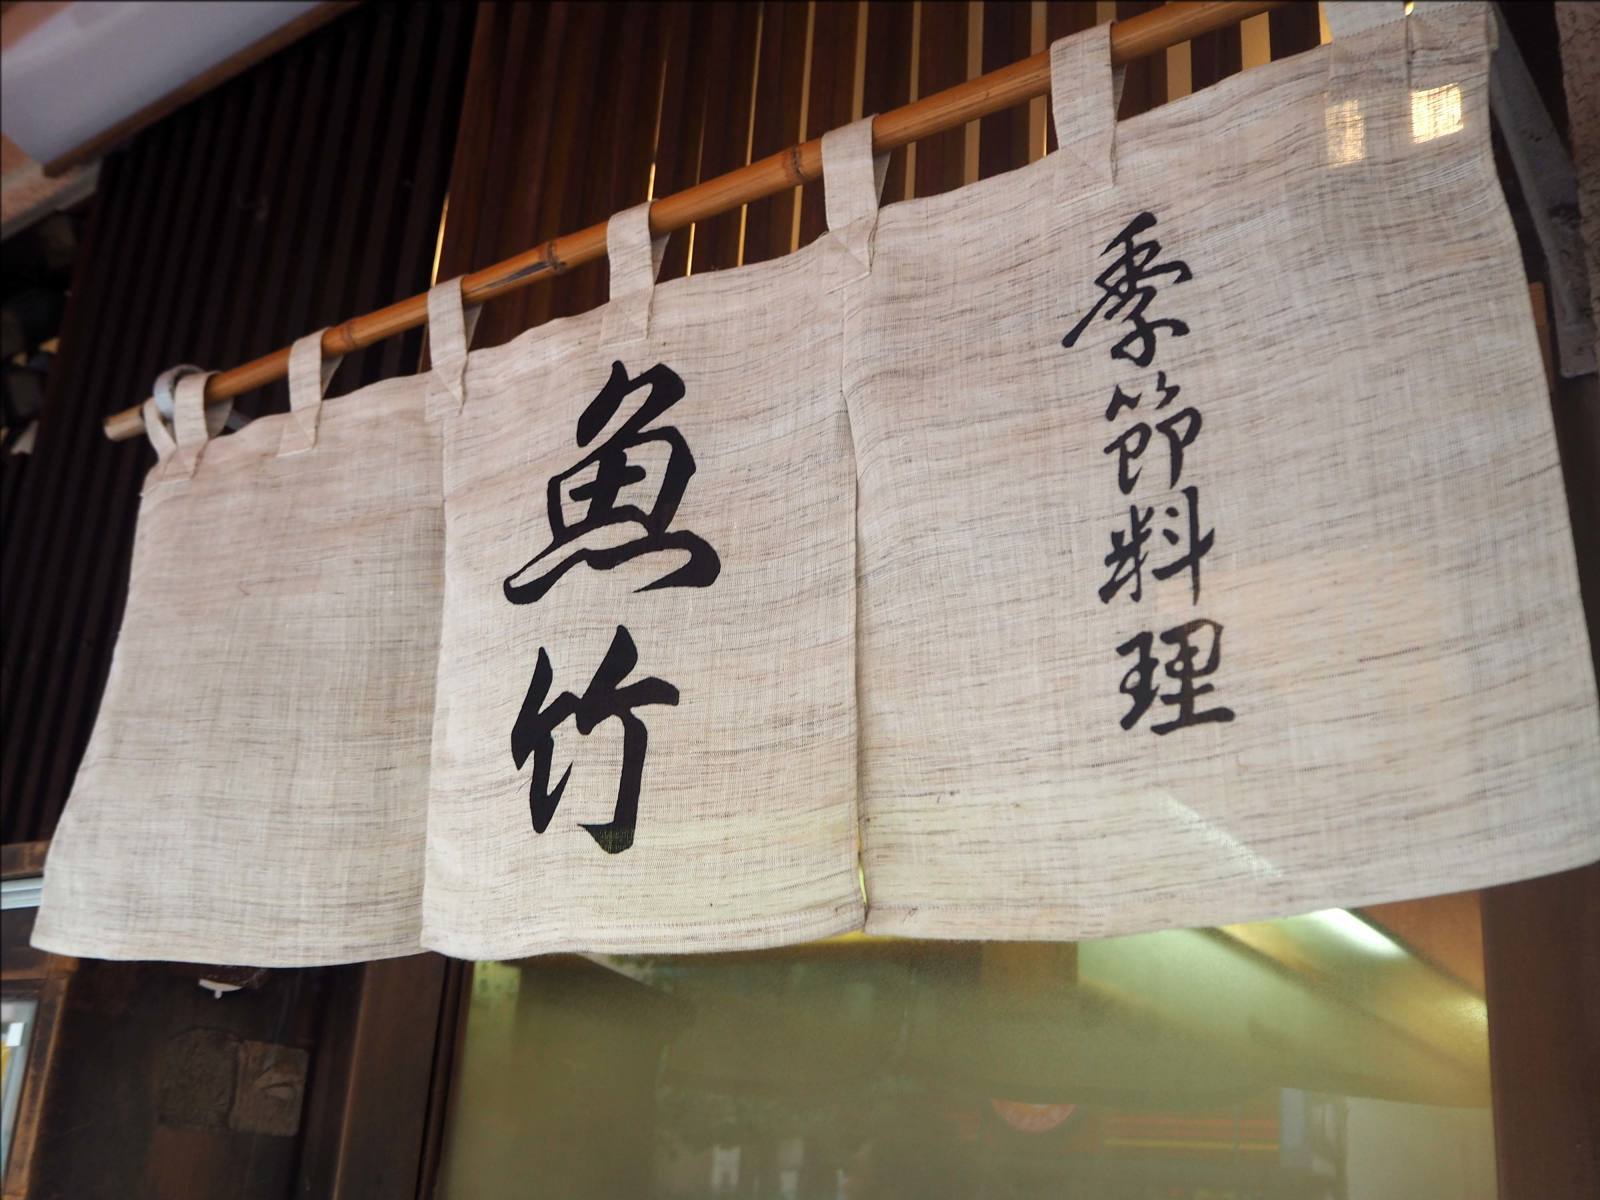 季節料理
魚竹